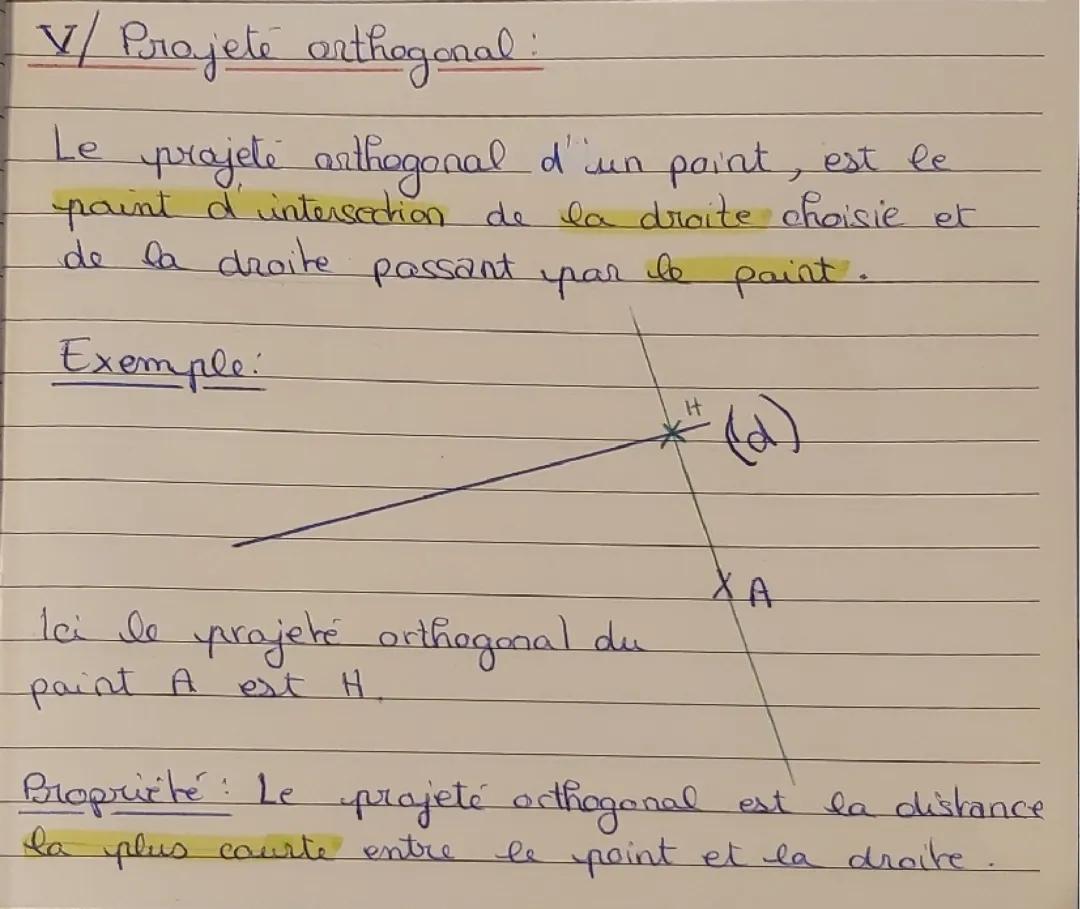 V/ Projeté orthogonal :
Le projeté orthogonal d'un point, est le
point d'intersection de la droite choisie et
de la droite passant par le point.
Exemple:
H
(d)
A
Ici le projeté orthogonal du
point A est H.
Propriété : Le projeté orthogonal est la distance
la plus courte entre le point et la droite.